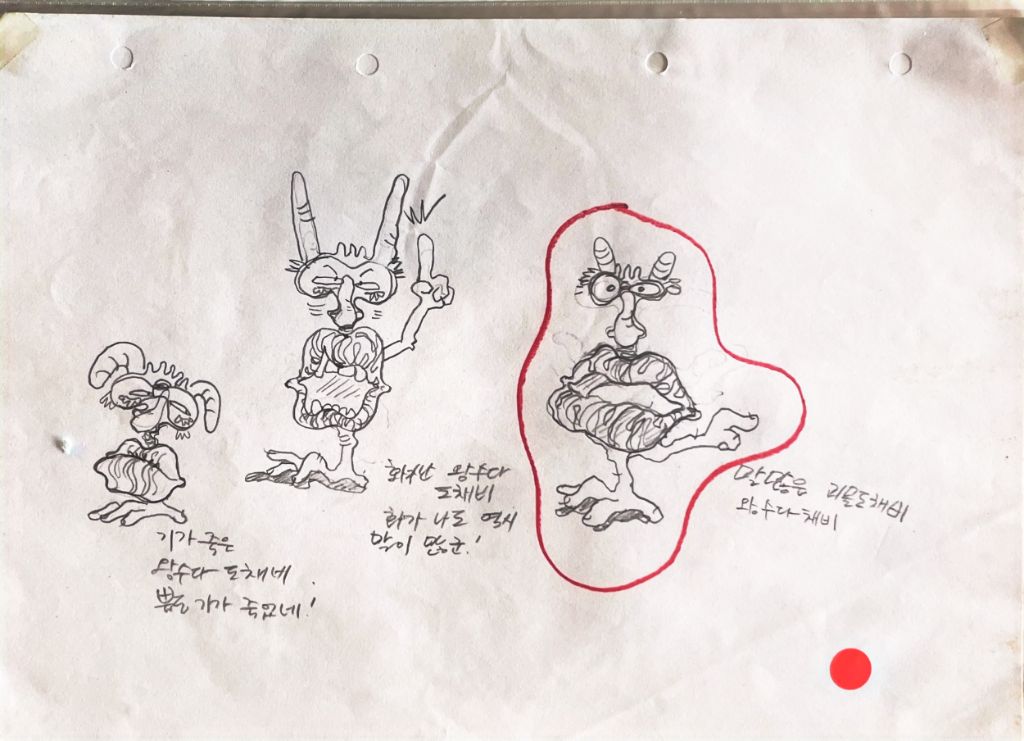 기가 죽은
왕수다 도채네
뿔도 기가 죽었네!
화가난 왕수다
도채비
화가 나도 역시
말이 많군!
말많은 괴물도채비
왕수다채비